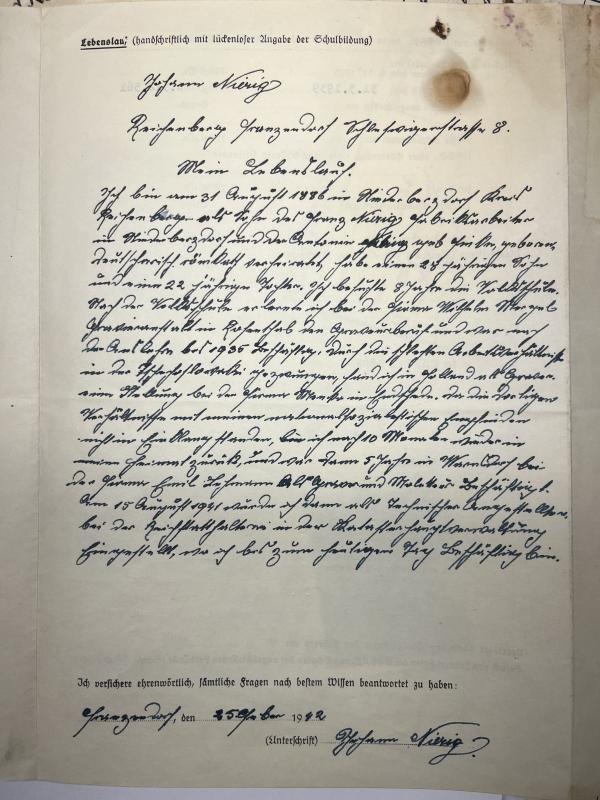 Lebenslauf (handschriftlich mit lückenloser Angabe der Schulbildung)
Johann Nierig
Reichenberg Franzendorf Schleswigerstrasse 8.
Mein Lebenslauf.
Ich bin am 31 August 1886 in Niederberzdorf Kreis
Reichenberg als Sohn des Franz Nierig Fabriksarbeiter
in Niederberzdorf und der Antonie geb geboren,
deutscherisch. römkath verheiratet, habe einen 28 jährigen Sohn
und eine 22 jährige Tochter. Ich besuchte 8 Jahre die Volksschule.
Nach der Volksschule erlernte ich bei der Firma Wilhelm Menzel
Gravieranstalt in Rosenthal den Graveurberuf und war nach
der Auslehre bis 1935 beschäftig. Durch die schlechten Arbeitsverhältnisse
in der Tschechoslowakei gezwungen, fand ich in Holland als Graveur
eine Stellung bei der Firma in Enschede. Da die dortigen
Verhältnisse mit meinem nationalsozialistischen Empfinden
nicht in Einklang standen, bin ich nach 10 Monaten wieder in
meine Heimat zurück, und war dann 5 Jahre in Warnsdorf bei
der Firma Emil Lehmann als Graveur und Moletteur Beschäftigt.
Am 15 August 1941 wurde ich dann als Technischer Angestellter
bei der Reichstatthalterei in der
Eingestellt, wo ich bis zum heutigen Tag Beschäftig bin.
Ich versichere ehrenwörtlich, sämtliche Fragen nach bestem Wissen beantwortet zu haben:
Franzendorf, den 25 1942
(Unterschrift) Johann Nierig